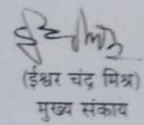 (ईश्वर चंद्र मिश्र)
मुख्य संकाय